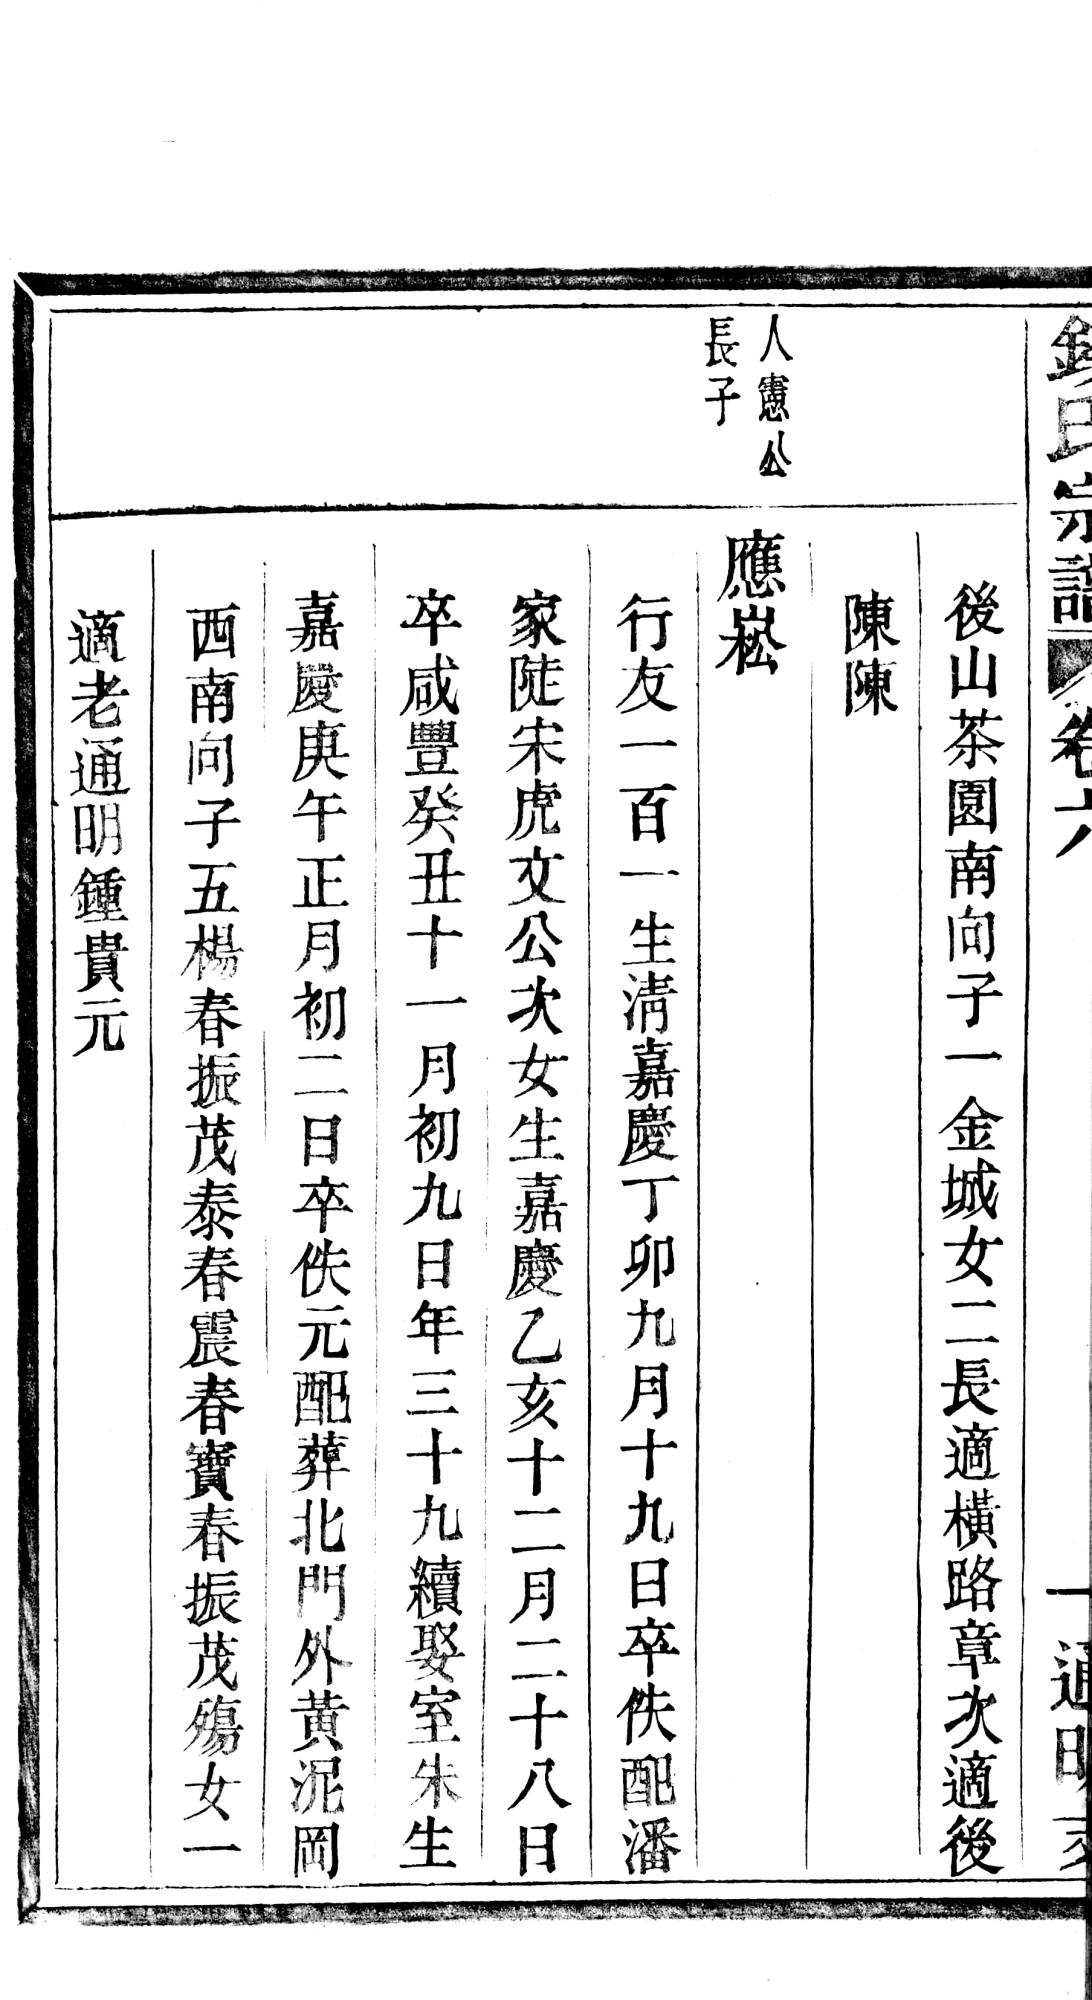 氏宗譜 卷六 一 通明
後山茶園南向子一金城女二長適橫路章次適後
陳陳
人憲公
長子
應崧
行友一百一生淸嘉慶丁卯九月十九日卒佚配潘
家陡宋虎文公次女生嘉慶乙亥十二月二十八日
卒咸豐癸丑十一月初九日年三十九續娶室朱生
嘉慶庚午正月初二日卒佚元配葬北門外黃泥岡
西南向子五楊春振茂泰春震春寶春振茂殤女一
適老通明鍾貴元